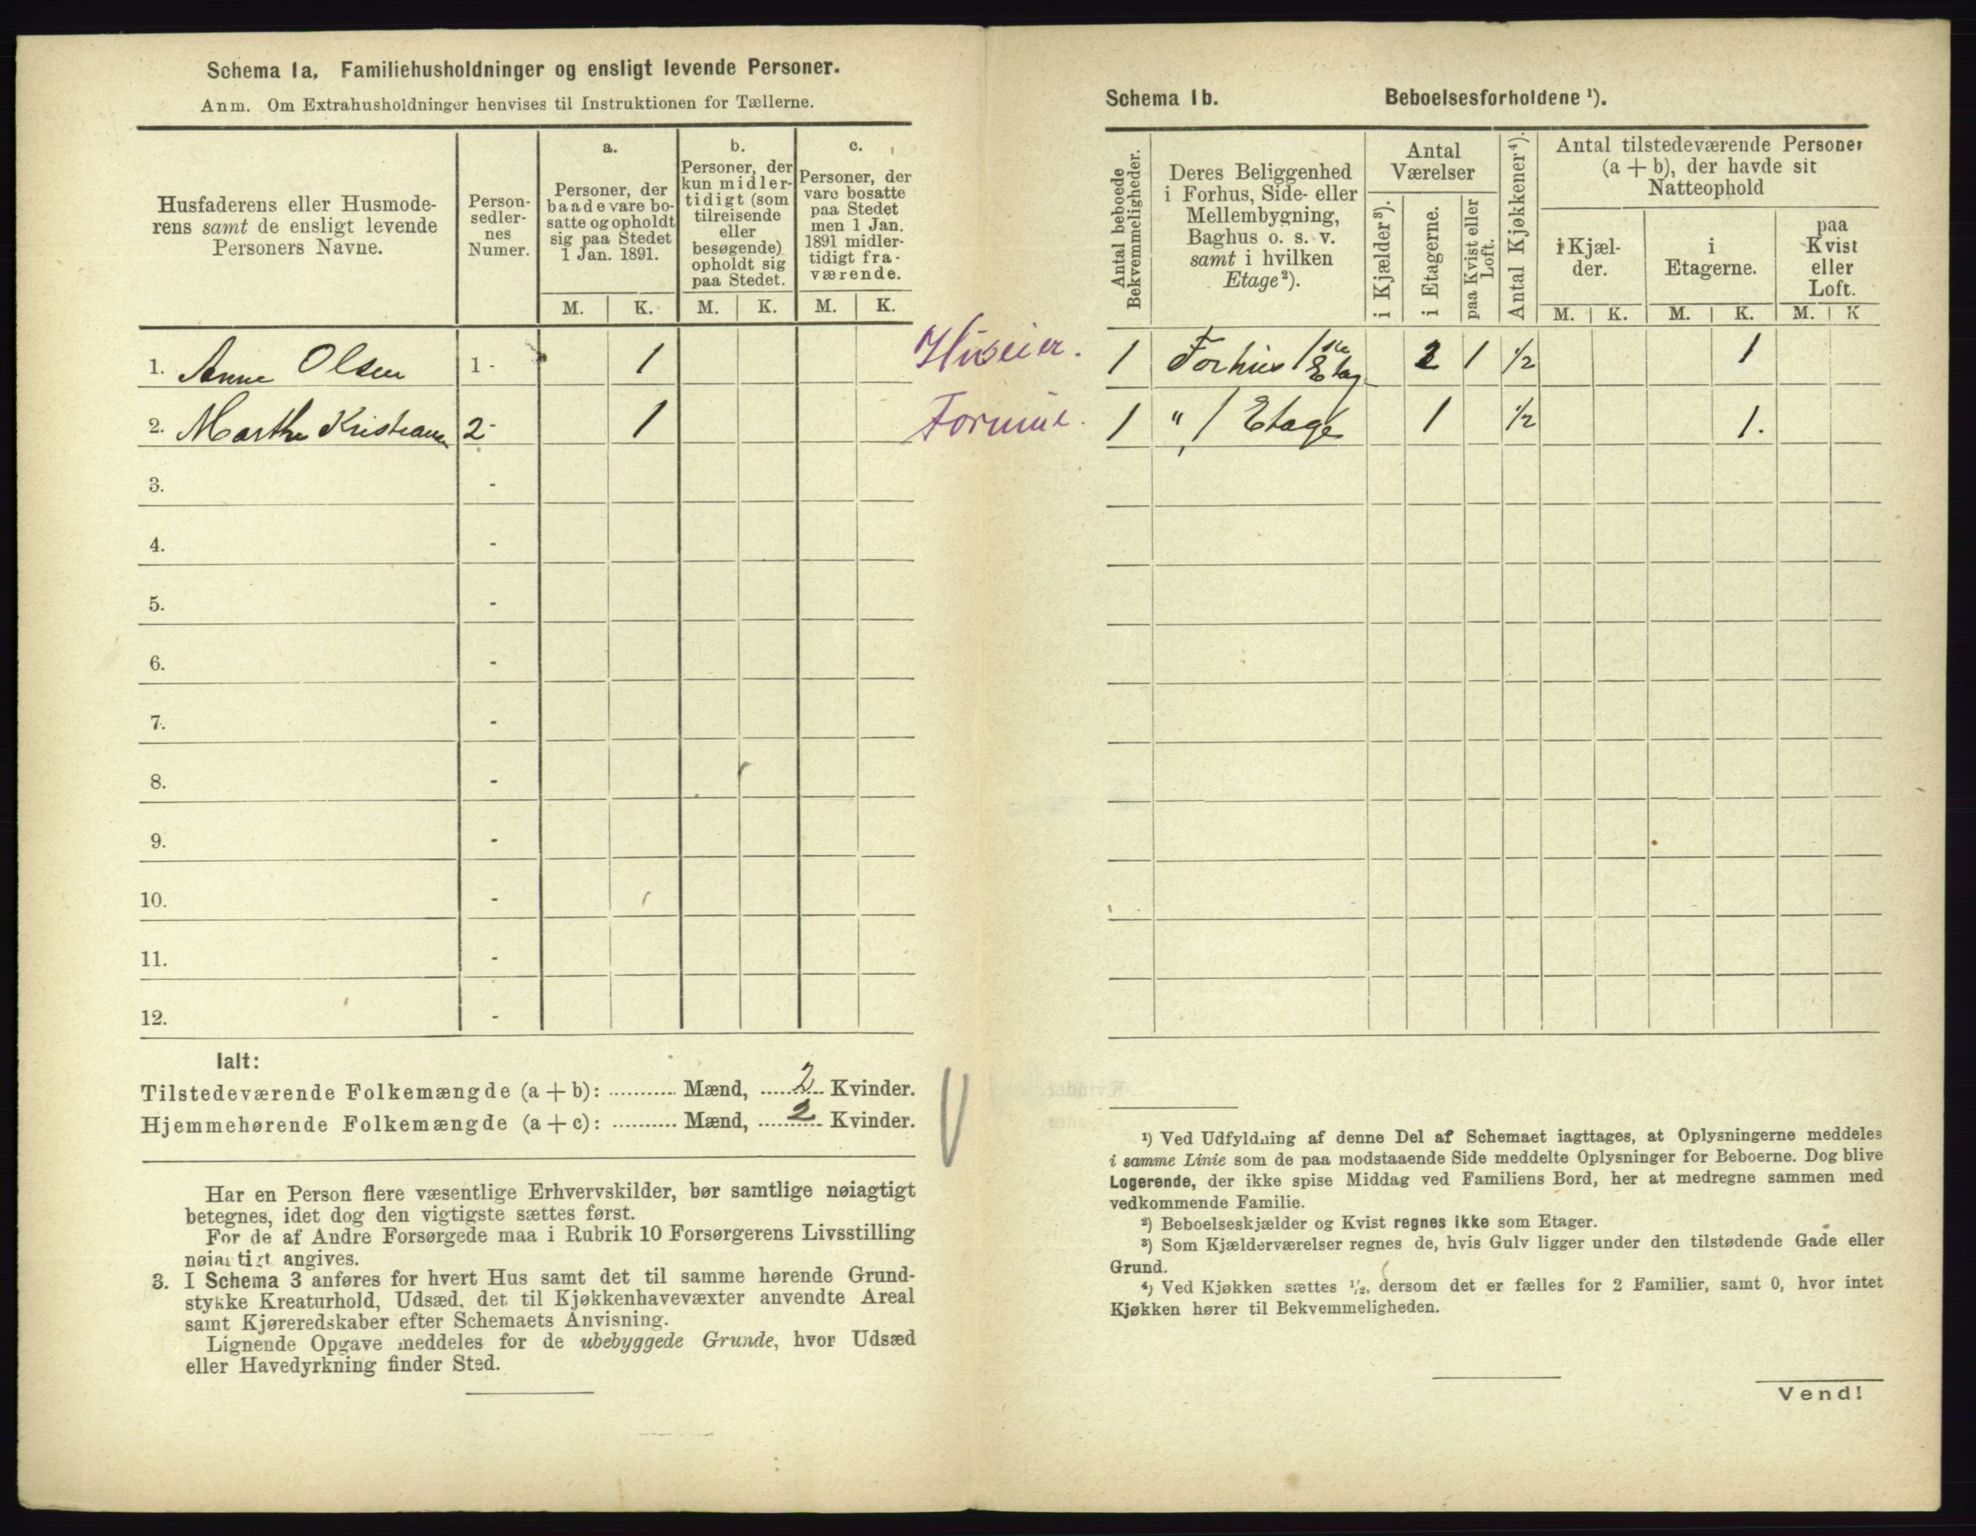 Schema 1a, Familiehusholdninger og ensligt levende Personer.
Anm. Om Extrahusholdninger henvises til Instruktionen for Tællerne.
Husfaderens eller Husmode-
rens samt de ensligt levende
Personers Navne.
Person-
sedler-
nes
Numer.
a.
Personer, der
baade vare bo-
satte og opholdt
sig paa Stedet
1 Jan. 1891.
b.
Personer, der
kun midler-
tidigt (som
tilreisende
eller
besøgende)
opholdt sig
paa Stedet.
c.
Personer, der
vare bosatte
paa Stedet
men 1 Jan.
1891 midler-
tidigt fra-
værende.
M. K. M. K. M. K.
1. Anne Olsen 1 - 1
2. Marthe Kristiansen 2 - 1
3. -
4. -
5. -
6. -
7. -
8. -
9. -
10. -
11. -
12. -
Ialt:
Tilstedeværende Folkemængde (a + b): Mænd, 2 Kvinder.
Hjemmehørende Folkemængde (a + c): Mænd, 2 Kvinder.
Har en Person flere væsentlige Erhvervskilder, bør samtlige nøiagtigt
betegnes, idet dog den vigtigste sættes først.
For de af Andre Forsørgede maa i Rubrik 10 Forsørgerens Livsstilling
nøiagtigt angives.
3. I Schema 3 anføres for hvert Hus samt det til samme hørende Grund-
stykke Kreaturhold, Udsæd, det til Kjøkkenhavevæxter anvendte Areal
samt Kjøreredskaber efter Schemaets Anvisning.
Lignende Opgave meddeles for de ubebyggede Grunde, hvor Udsæd
eller Havedyrkning finder Sted.
Huseier.
Schema 1b. Beboelsesforholdene ¹).
Antal beboede
Bekvemmeligheder.
Deres Beliggenhed
i Forhus, Side- eller
Mellembygning,
Baghus o. s. v.
samt i hvilken
Etage²).
Antal
Værelser
i Kjælder³).
i Etagerne.
paa Kvist eller
Loft.
Antal Kjøkkener⁴).
Antal tilstedeværende Personer
(a + b), der havde sit
Natteophold
i Kjæl-
der.
i
Etagerne.
paa
Kvist
eller
Loft.
M. K. M. K. M. K
1 Forhus 1ste Etag 2 1 ½ 1
1 „ 1 Etage 1 ½ 1.
¹) Ved Udfyldning af denne Del af Schemaet iagttages, at Oplysningerne meddeles
i samme Linie som de paa modstaaende Side meddelte Oplysninger for Beboerne. Dog blive
Logerende, der ikke spise Middag ved Familiens Bord, her at medregne sammen med
vedkommende Familie.
²) Beboelseskjælder og Kvist regnes ikke som Etager.
³) Som Kjælderværelser regnes de, hvis Gulv ligger under den tilstødende Gade eller
Grund.
⁴) Ved Kjøkken sættes ½, dersom det er fælles for 2 Familier, samt 0, hvor intet
Kjøkken hører til Bekvemmeligheden.
Vend!